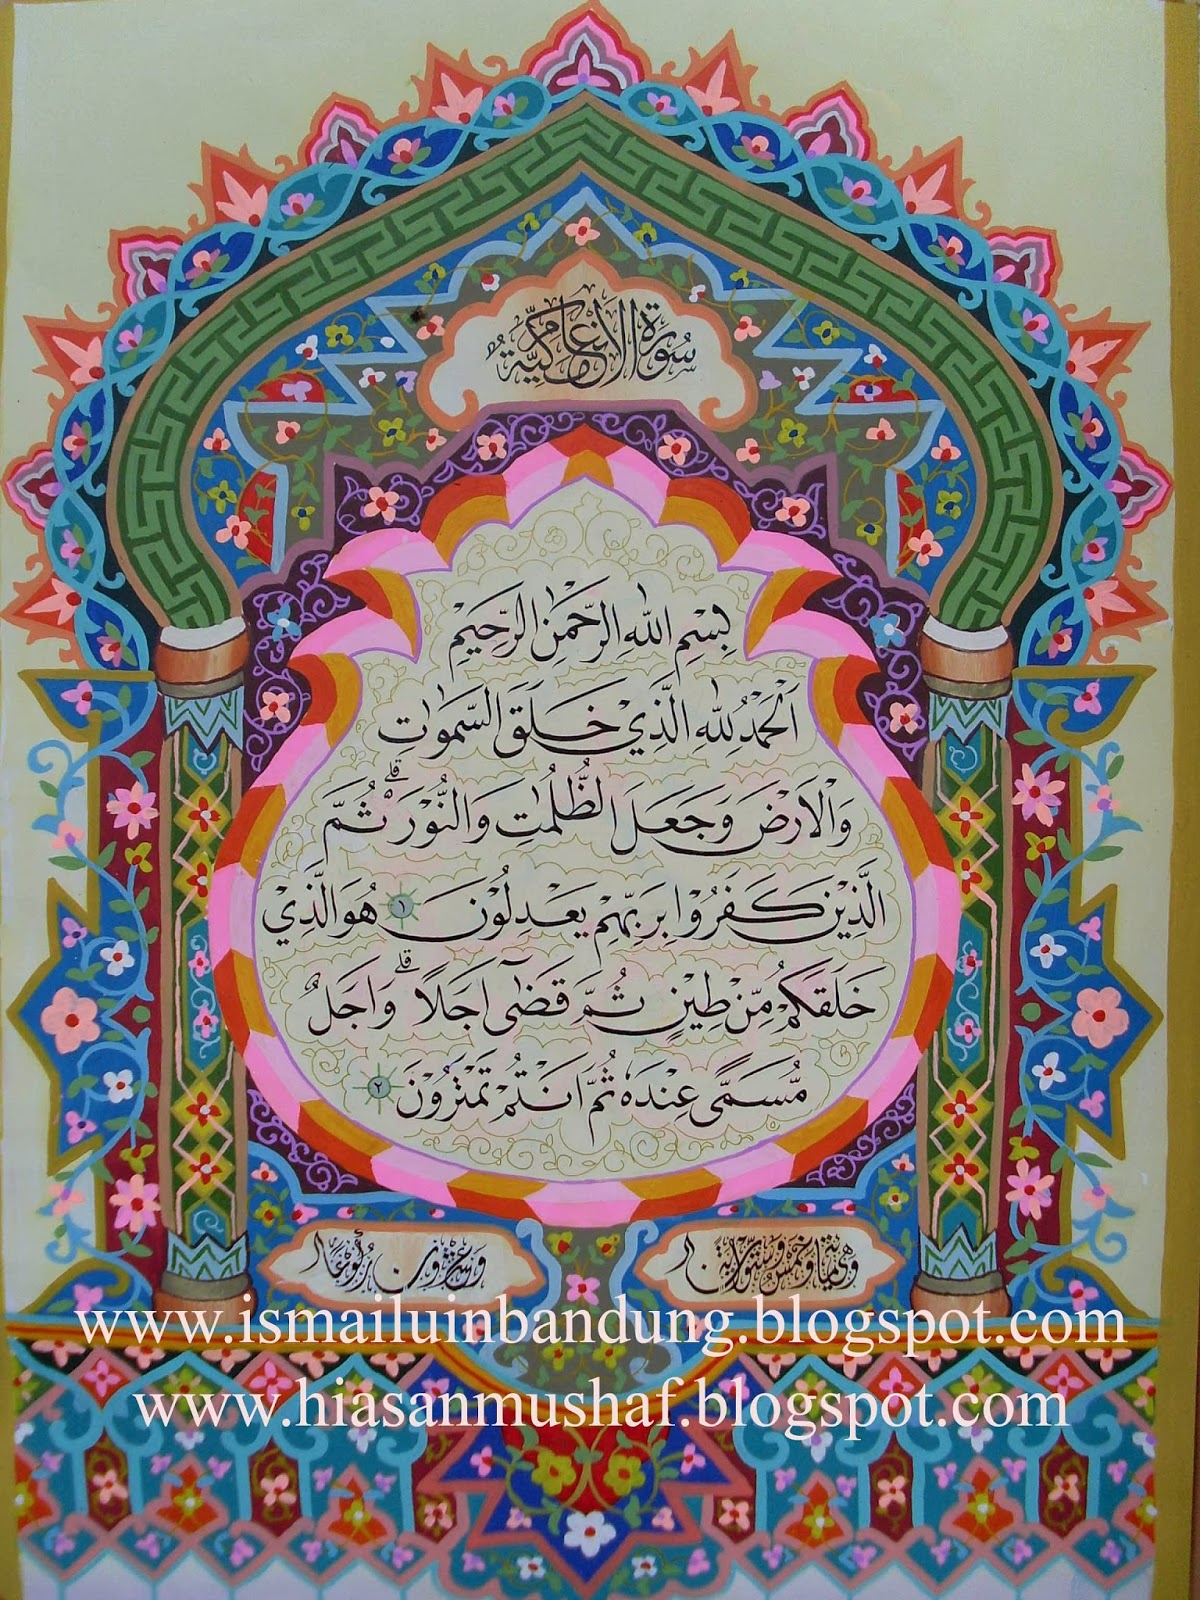 سُورَةُ الْأَنْعَامِ مَكِّيَّةٌ
بِسْمِ اللّٰهِ الرَّحْمٰنِ الرَّحِيْمِ
اَلْحَمْدُ لِلّٰهِ الَّذِيْ خَلَقَ السَّمٰوٰتِ
وَالْاَرْضَ وَجَعَلَ الظُّلُمٰتِ وَالنُّوْرَ ۗ ثُمَّ
الَّذِيْنَ كَفَرُوْا بِرَبِّهِمْ يَعْدِلُوْنَ ١ هُوَ الَّذِيْ
خَلَقَكُمْ مِّنْ طِيْنٍ ثُمَّ قَضٰٓى اَجَلًا ۗ وَاَجَلٌ
مُّسَمًّى عِنْدَهٗ ثُمَّ اَنْتُمْ تَمْتَرُوْنَ ٢
وهي مائة وخمس وستون اية
وعشرون ركوعا
www.ismailuinbandung.blogspot.com
www.hiasanmushaf.blogspot.com